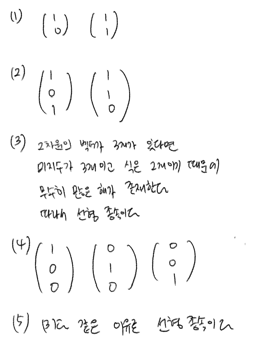 (1) (1 0) (1 1)
(2) (1 0 1) (1 1 0)
(3) 2차원의 벡터가 3개가 있다면
미지수가 3개이고 식은 2개이기 때문에
무수히 많은 해가 존재한다
따라서 선형 종속이다
(4) (1 0 0) (0 1 0) (0 0 1)
(5) 같은 이유로 선형 종속이다